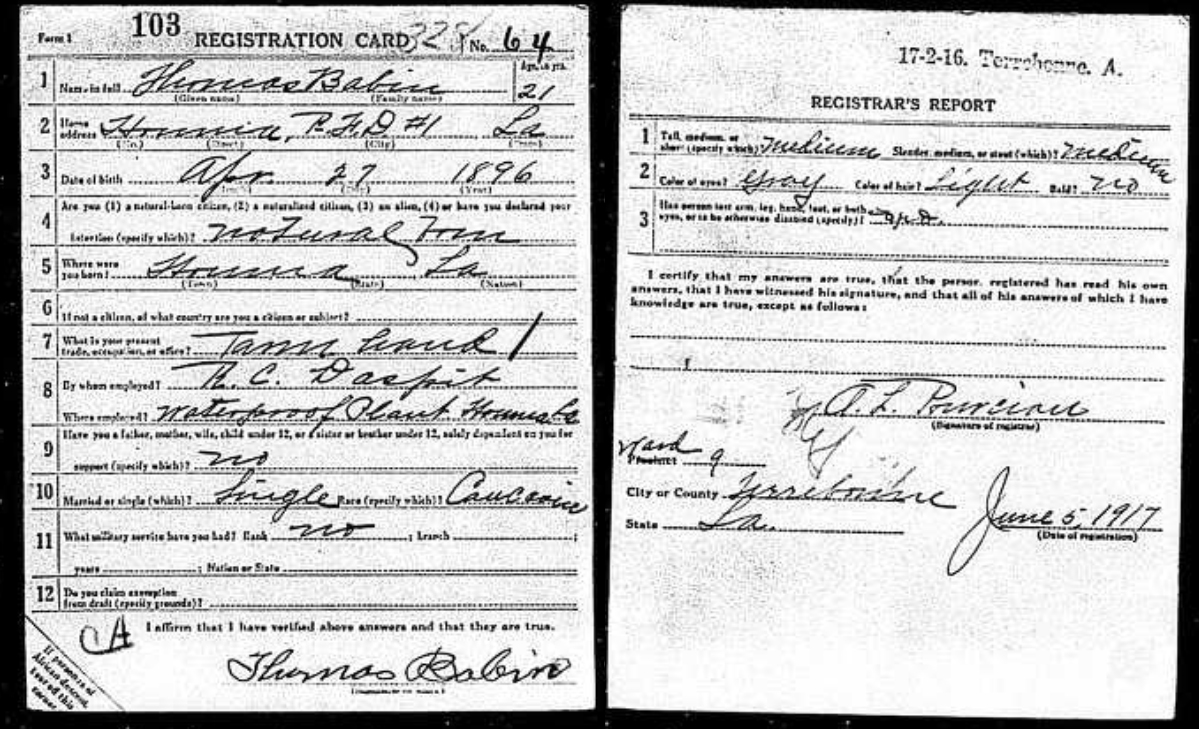 Form 1 103 REGISTRATION CARD 328 No. 64
1 Name in full Thomas Babin Age, in yrs. 21
(Given name) (Family name)
2 Home address Houma, R.F.D #1 La
(No.) (Street) (City) (State)
3 Date of birth Apr. 27 1896
(Month) (Day) (Year)
4 Are you (1) a natural-born citizen, (2) a naturalized citizen, (3) an alien, (4) or have you declared your
intention (specify which)? natural born
5 Where were you born? Houma La
(Town) (State) (Nation)
6 If not a citizen, of what country are you a citizen or subject?
7 What is your present trade, occupation, or office? Farm hand
8 By whom employed? R. C. Daspit
Where employed? Waterproof Plant. Houma La
9 Have you a father, mother, wife, child under 12, or a sister or brother under 12, solely dependent on you for
support (specify which)? no
10 Married or single (which)? Single Race (specify which)?
11 What military service have you had? Rank no ; branch ;
years ; Nation or State
12 Do you claim exemption from draft (specify grounds)?
CA I affirm that I have verified above answers and that they are true.
Thomas Babin
If person is of African descent, tear off this corner
17-2-16. Terrebonne. A.
REGISTRAR'S REPORT
1 Tall, medium, or short (specify which)? Medium Slender, medium, or stout (which)? Medium
2 Color of eyes? Gray Color of hair? Light Bald? no
3 Has person lost arm, leg, hand, foot, or both
eyes, or is he otherwise disabled (specify)?
I certify that my answers are true, that the person registered has read his own
answers, that I have witnessed his signature, and that all of his answers of which I have
knowledge are true, except as follows:
A. L. Pourciau
(Signature of registrar)
Ward
Precinct 9
City or County Terrebonne
State La.
June 5, 1917
(Date of registration)